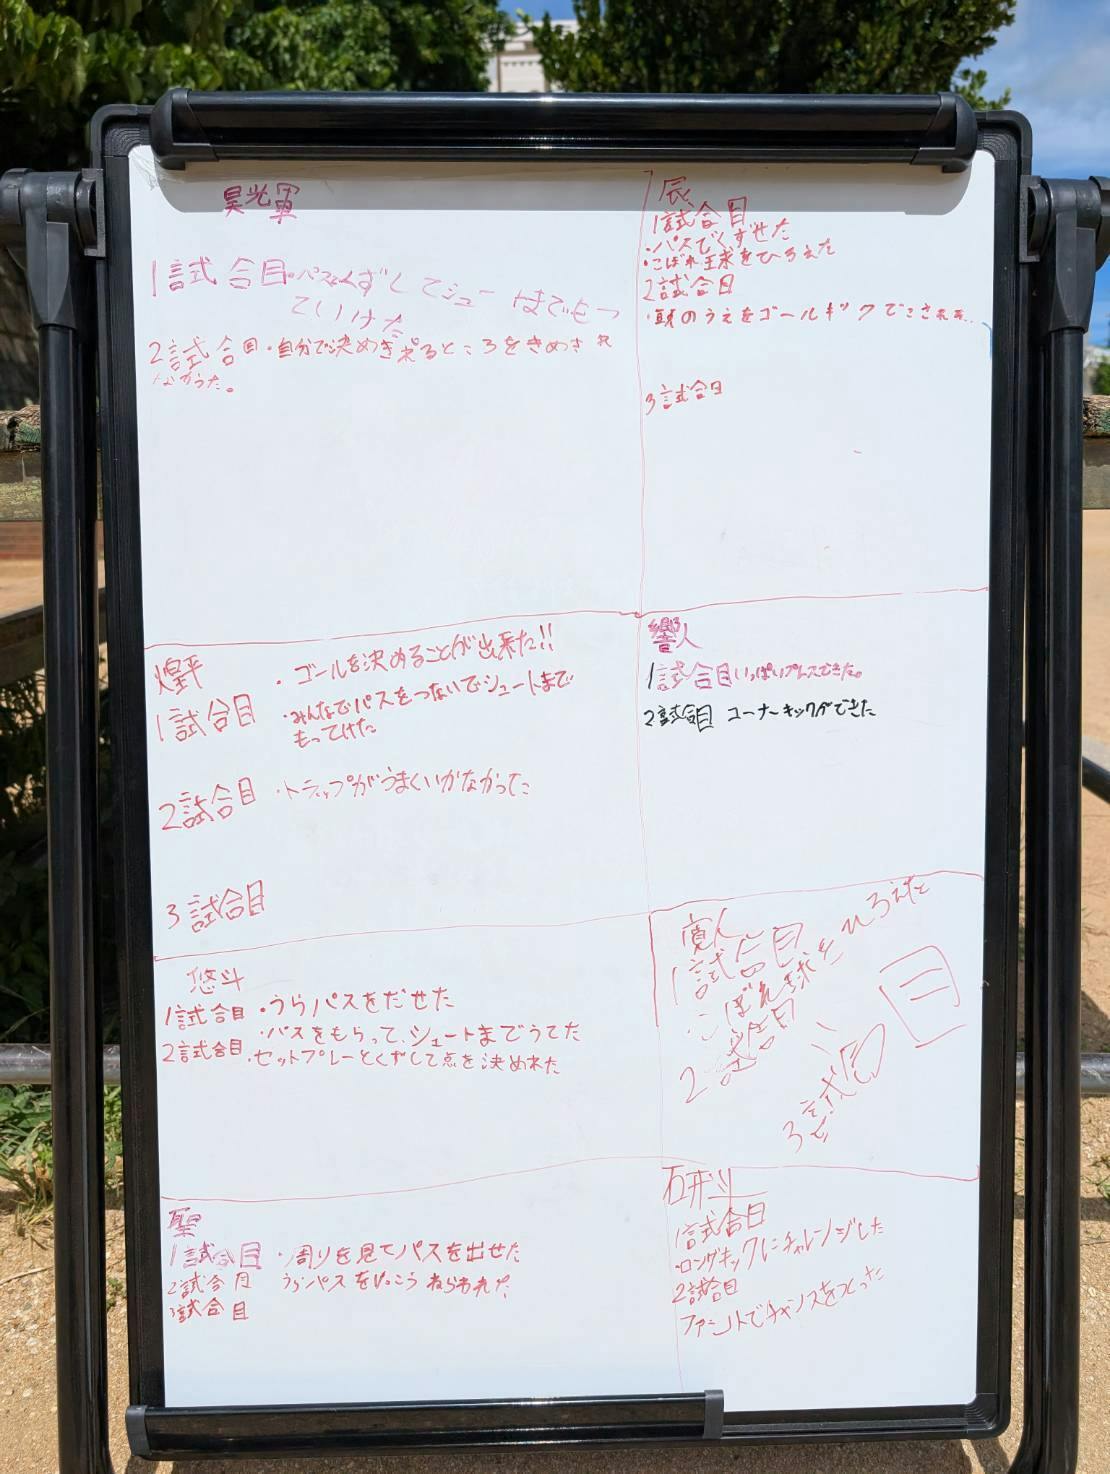 昊光軍
1試合目・パスでくずしてシュートまでもっ
ていけた
2試合目・自分で決めきれるところをきめきれ
なかった。
辰
1試合目
・パスでくずせた
・こぼれ球をひろえた
2試合目
・頭のうえをゴールキックでこされた
3試合目
煌平
・ゴールを決めることが出来た!!
1試合目
・みんなでパスをつないでシュートまで
もってけた
2試合目 ・トラップがうまくいかなかった
3試合目
響人
1試合目いっぱいプレスできた。
2試合目 コーナーキックができた
悠斗
1試合目 ・うらパスをだせた
・パスをもらって、シュートまでうてた
2試合目・セットプレーとくずして点を決めれた
寛人
1試合目
・こぼれ球をひろえた
2試合目
3試合目
聖
1試合目 ・周りを見てパスを出せた
2試合目 うらパスをけっこうねらわれた
3試合目
1試合目
・ロングキックにチャレンジした
2試合目
ファーストでチャンスをつくった